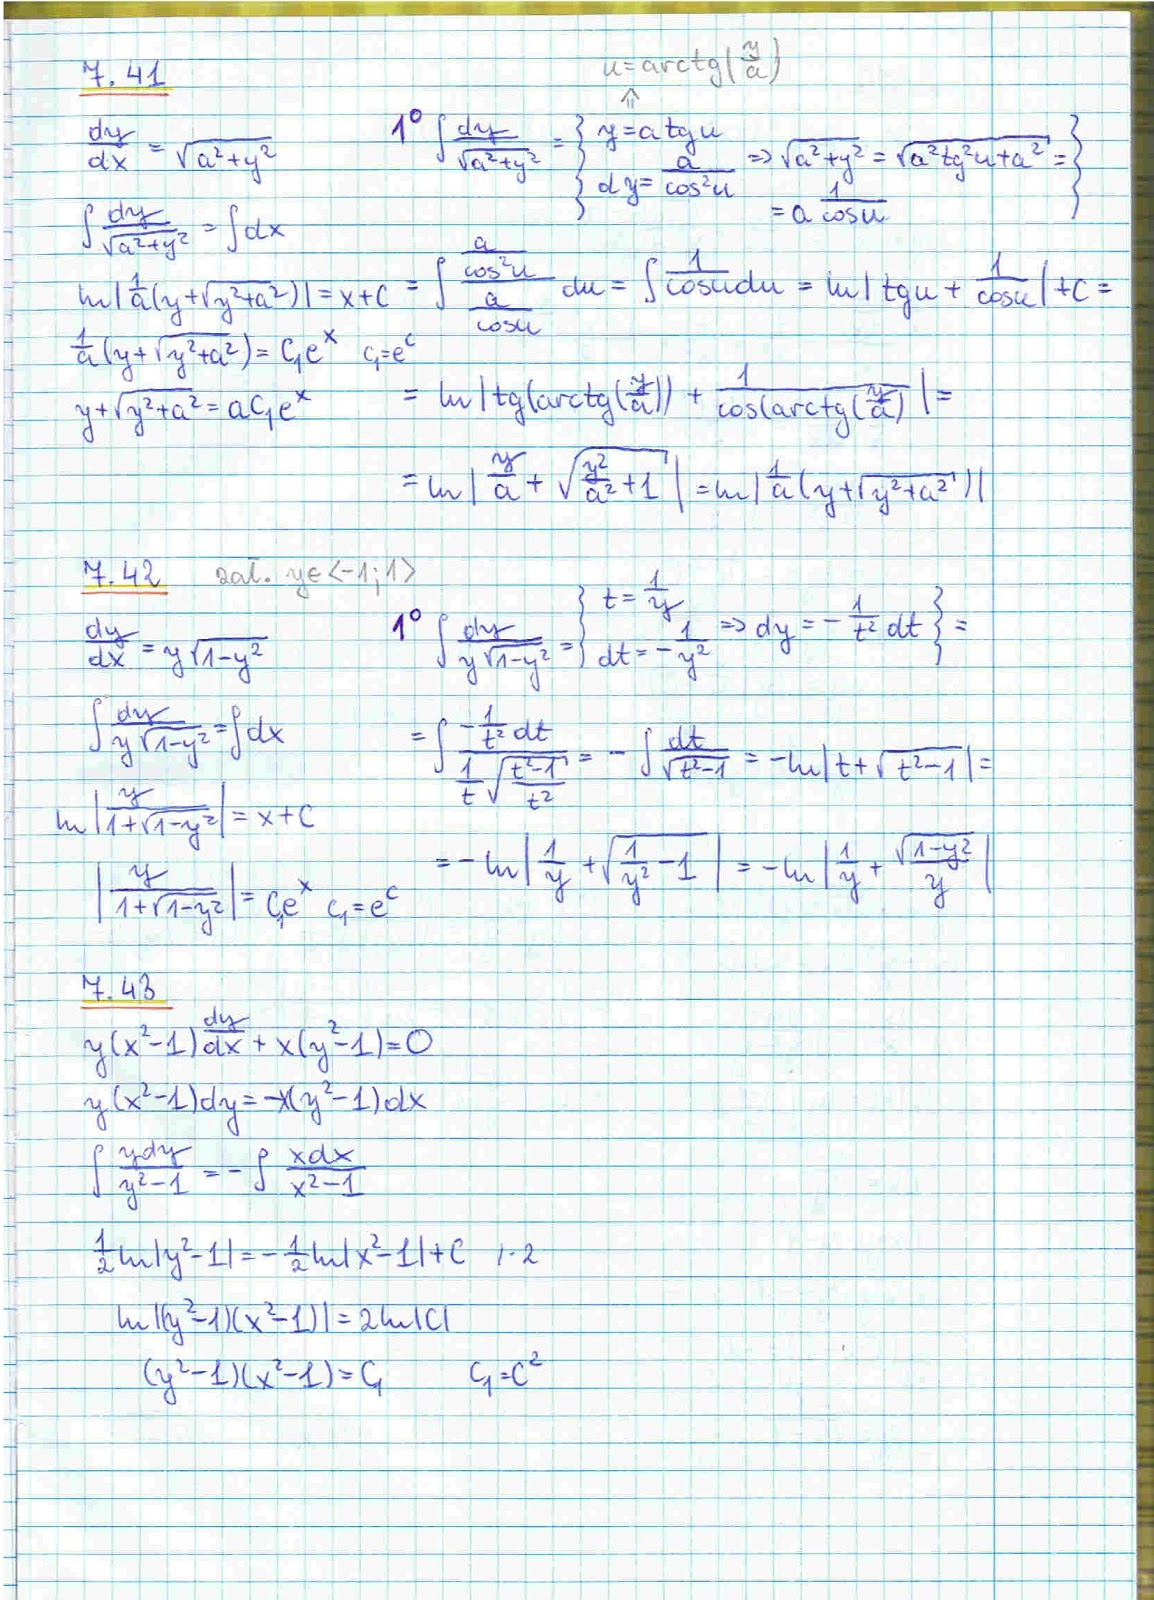 7.41
u=arctg(y/a)
⇑
dy/dx = √(a²+y²)
1° ∫ dy/√(a²+y²) = { y=a tgu
dy= a/cos²u ⇒ √(a²+y²) = √(a²tg²u+a²) =
= a 1/cosu }
∫ dy/√(a²+y²) = ∫dx
ln|1/a(y+√(y²+a²))| = x+C
= ∫ (a/cos²u)/(a/cosu) du = ∫ 1/cosu du = ln|tgu + 1/cosu| + C =
1/a(y+√(y²+a²)) = C₁eˣ C₁=e^c
y+√(y²+a²) = aC₁eˣ
= ln|tg(arctg(y/a)) + 1/cos(arctg(y/a))| =
= ln|y/a + √(y²/a²+1)| = ln|1/a(y+√(y²+a²))|
7.42 zał. y∈<-1;1>
dy/dx = y√(1-y²)
1° ∫ dy/(y√(1-y²)) = { t = 1/y
dt = -1/y² ⇒ dy = -1/t² dt } =
∫ dy/(y√(1-y²)) = ∫dx
= ∫ (-1/t² dt)/(1/t √((t²-1)/t²)) = -∫ dt/√(t²-1) = -ln|t+√(t²-1)| =
ln|y/(1+√(1-y²))| = x+C
= -ln|1/y + √(1/y²-1)| = -ln|1/y + √(1-y²)/y|
|y/(1+√(1-y²))| = C₁eˣ C₁=e^c
7.43
y(x²-1) dy/dx + x(y²-1)=0
y(x²-1)dy=-x(y²-1)dx
∫ ydy/(y²-1) = -∫ xdx/(x²-1)
1/2 ln|y²-1| = -1/2 ln|x²-1|+C /·2
ln|(y²-1)(x²-1)| = 2ln|C|
(y²-1)(x²-1)=C₁ C₁=C²